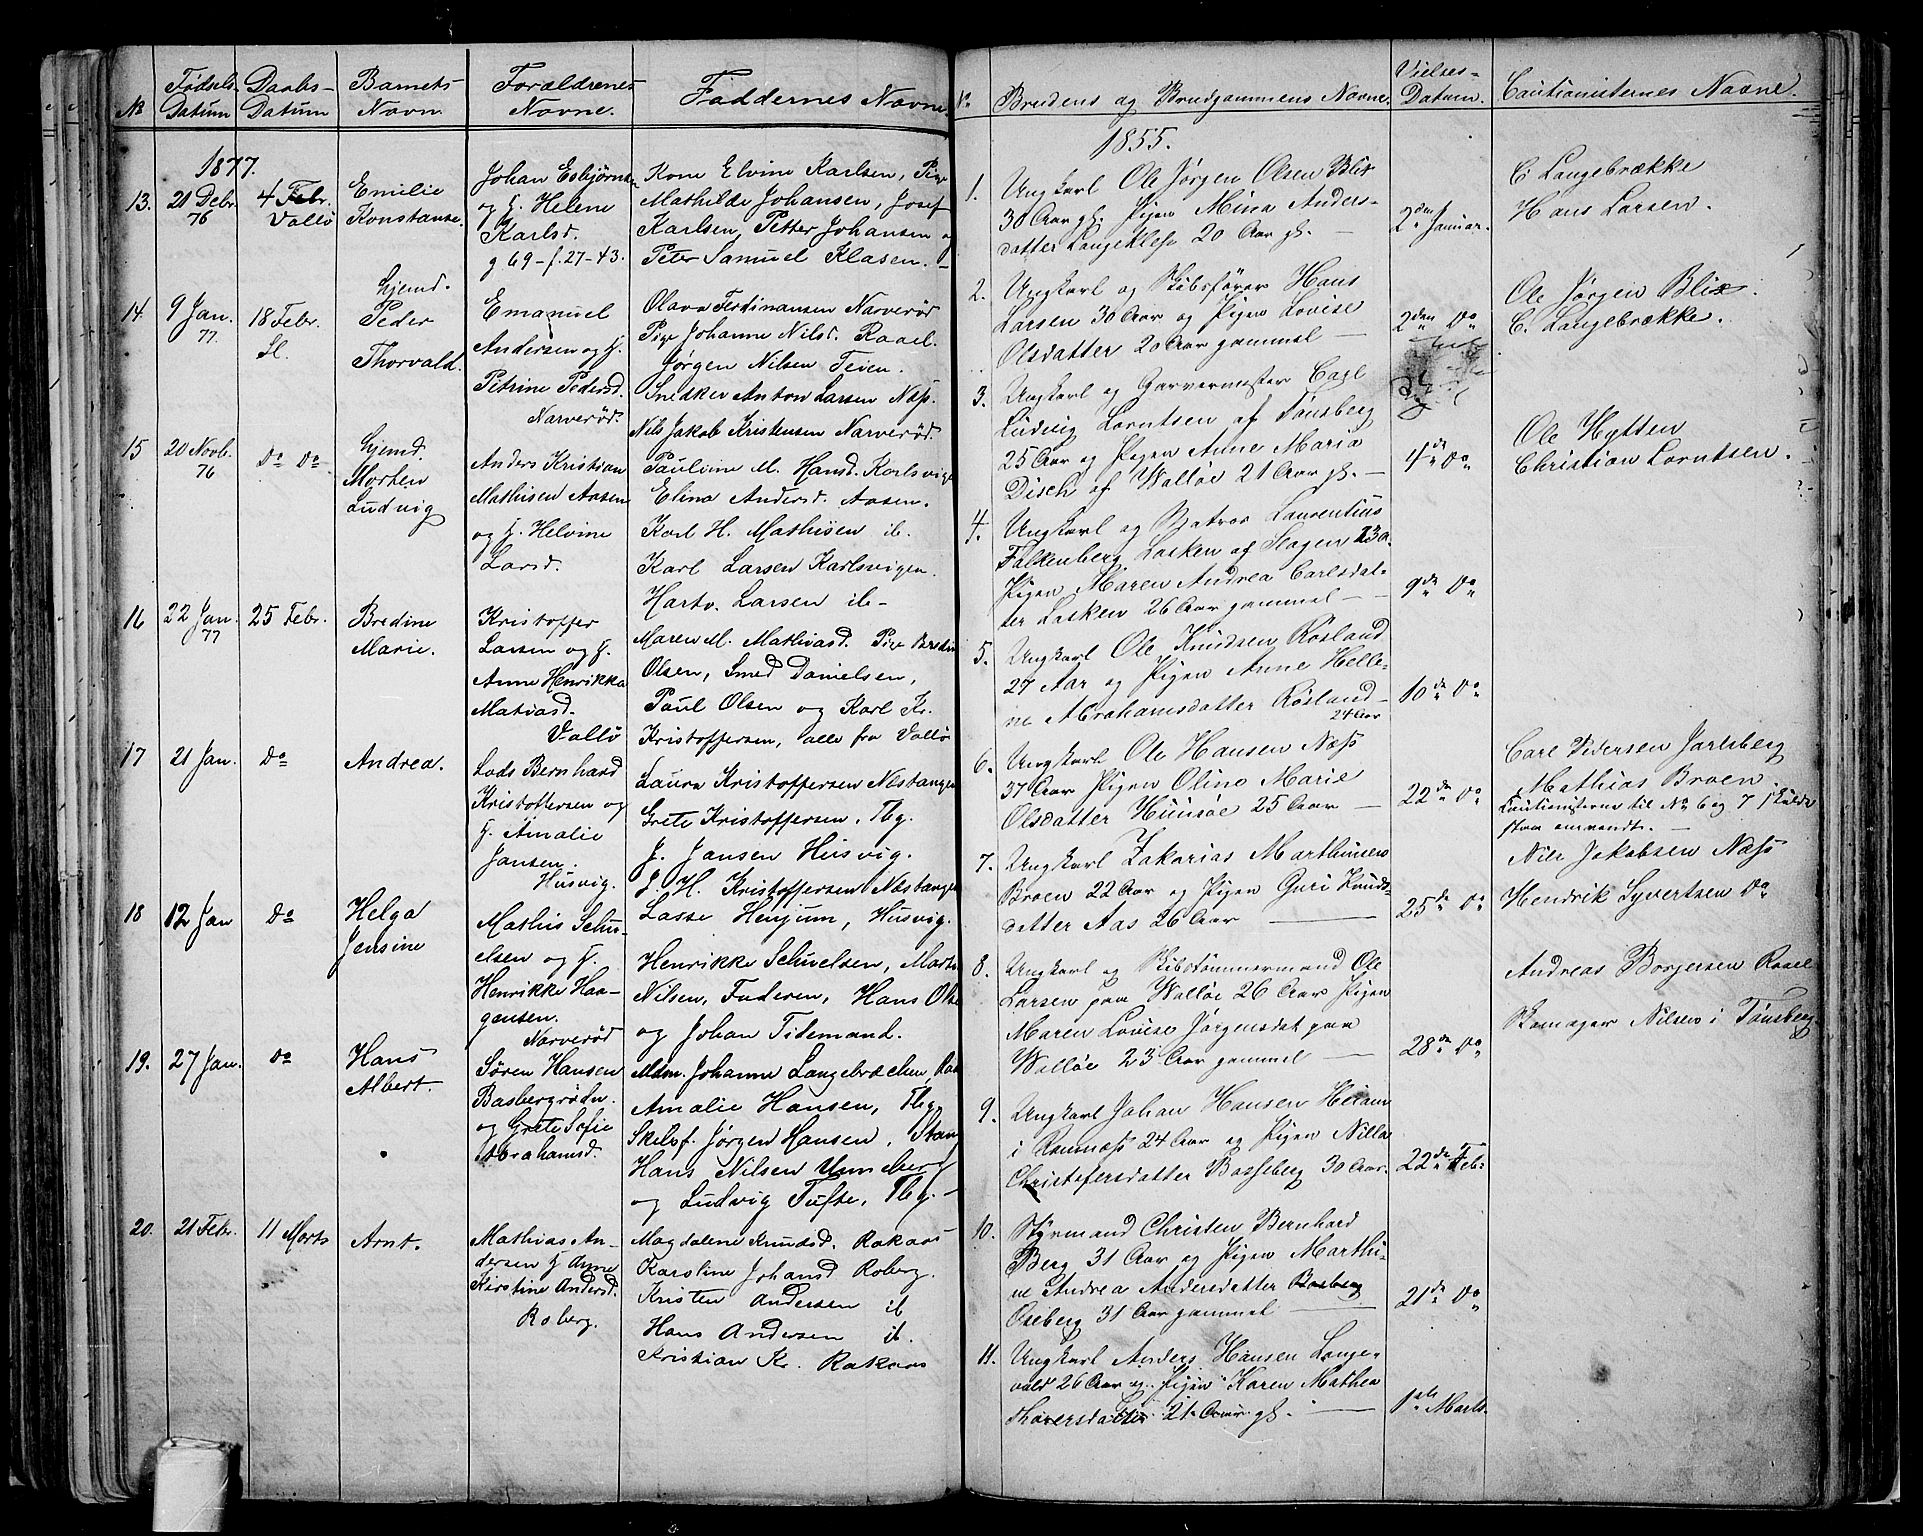 № Fødsels- Datum
Daabs- Datum
Barnets Navn.
Forældrenes Navne.
Faddernes Navne
1877.
13. 21 Debr. 76
4 Febr. Vallø
Emilie
Konstanse.
Johan Esbjørns
og H. Helene
Karlsd.
g 69 - f. 27 - 43.
Kone Elvine Karlsen, Pige
Mathilde Johansen, Josef
Karlsen, Petter Johansen og
Peter Samuel Klasen. -
14. 9 Jan. 77.
18 Febr. Sl.
Hjemd.
Peder
Thorvald.
Emanuel
Andersen og H.
Petrine Pedersd.
Narverød.
Olava Ferdinansen Narverød
Pige Johanne Nilsd. Raael.
Jørgen Nilsen Teien.
Snedker Anton Larsen Næss.
Nils Jakob Kristensen Narverød.
15 20 Novb. 76
Do Do
Hjemd.
Morten
Ludvig
Anders Kristian
Mathisen Aasen
og H. Helvine
Larsd.
Pauline M. Hansd. Karlsvige
Elina Andersd. Aasen.
Karl H. Mathisen ib.
Karl Larsen Karlsvigen.
Hartv. Larsen ib-
16 22 Jan. 77
25 Febr.
Bredine
Marie.
Kristoffer
Larsen og H.
Anne Henrikka
Matiasd.
Vallø
Maren M. Mathiasd. Pige Bredin
Olsen, Smed Danielsen,
Paul Olsen og Karl Kr.
Kristoffersen, alle fra Vallø
17 21 Jan.
Do
Andrea.
Lods Bernhard
Kristoffersen og
H. Amalie
Jansen.
Husvig.
Laura Kristoffersen Næstangen
Grete Kristoffersen, Tbg.
J. Jansen Husvig.
J. H. Kristoffersen Næstangen
Lasse Henjum, Husvig.
18 12 Jan
Do
Helga
Jensine
Mathis Schu-
elsen og H.
Henrikke Haa-
gensen.
Narverød
Henrikke Schuelsen, Marte
Nilsen, Faderen, Hans Olse
og Johan Tidemand.
19. 27 Jan.
Do
Hans
Albert.
Søren Hansen
Basbergrødn.
og Grete Sofie
Abrahamsd.
Mdm. Johanne Langebrækken,
Amalie Hansen, Tbg.
Skibsf. Jørgen Hansen, Stang
Hans Nilsen Unneberg
og Ludvig Tufte, Tbg. -
20. 21 Febr.
11 Marts
Arnt.
Mathias An-
dersen H Anne
Kirstine Andersd.
Roberg.
Magdalene Knudsd. Rakaas
Karoline Johansd Roberg.
Kristen Andersen ib
Hans Andersen ib.
Kristian Kr. Rakaas
№ Brudens og Brudgommens Navne.
Vielses- Datum.
Cautionisternes Navne.
1855.
1. Ungkarl Ole Jørgen Olsen Blix
30 Aar gl. Pigen Mina Anders-
datter Langeklep 20 Aar gl. -
2den Januar.
C. Langebrække
Hans Larsen.
2. Ungkarl og Skibsfører Hans
Larsen 30 Aar og Pigen Lovise
Olsdatter 20 Aar gammel -
2den Do
Ole Jørgen Blix.
C. Langebrække.
3. Ungkarl og Garvermester Carl
Ludvig Lorntsen af Tønsberg
25 Aar og Pigen Anne Maria
Disch af Walløe 21 Aar gl. -
4de Do
Ole Hytten
Christian Lorntsen.
4. Ungkarl og Matros Laurentius
Falkenberg Lasken af Slagen 23 a.
Pigen Maren Andrea Carlsdat-
ter Lasken 26 Aar gammel -
9de Do
5. Ungkarl Ole Knudsen Røsland
27 Aar og Pigen Anne Helle-
ne Abrahamsdatter Røsland
24 Aar
10de Do
6. Ungkarl Ole Hansen Næss
37 Aar Pigen Oline Marie
Olsdatter Huusøe 25 Aar -
22de Do
Carl Pedersen Jarlsberg
Mathias Broen.
Cautionisterne til No 6 og 7 skulde
staa omvendt. -
7. Ungkarl Zakarias Marthinsen
Broen 22 Aar og Pigen Guri Knuds-
datter Aas 26 Aar -
25de Do
Nils Jakobsen Næss
Hendrik Syvertsen Do
8. Ungkarl og Skibstømmermand Ole
Larsen paa Walløe 26 Aar Pigen
Maren Lovise Jørgensdat paa
Walløe 23 Aar gammel -
28de Do
Andreas Borgersen Raael
Skomager Nilsen i Tønsberg
9. Ungkarl Johan Hansen
i Ramnæss 24 Aar og Pigen Nilla
Christofersdatter Basseberg 30 Aar.
22de Feb.
10. Styrmand Christen Bernhard
Berg 31 Aar og Pigen Marthi-
ne Andrea Andersdatter Basberg
Oseberg 31 Aar gammel -
21de Do
11. Ungkarl Anders Hansen Lange-
vald 26 Aar og Pigen Karen Mathea
Thoversdatter 21 Aar gl. -
1ste Marts.